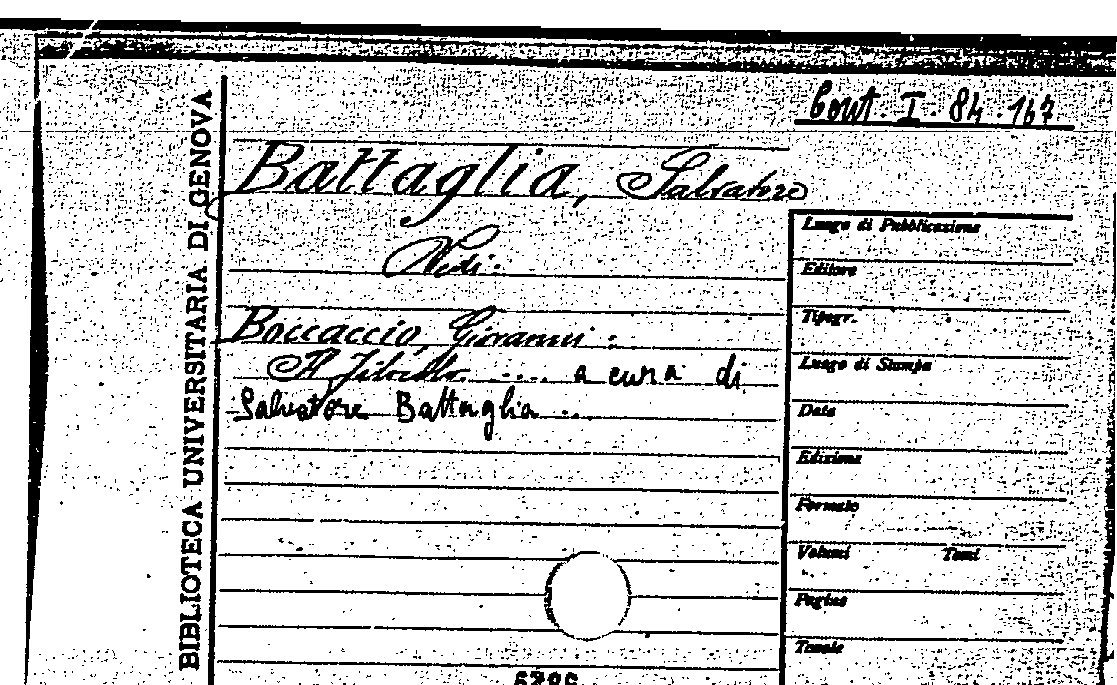 BIBLIOTECA UNIVERSITARIA DI GENOVA
Cout. I. 84. 167
Battaglia, Salvatore
Vedi:
Boccaccio, Giovanni :
Il Filocolo .... a cura di
Salvatore Battaglia ...
Luogo di Pubblicazione
Editore
Tipogr.
Luogo di Stampa
Data
Edizione
Formato
Volumi Tomi
Pagine